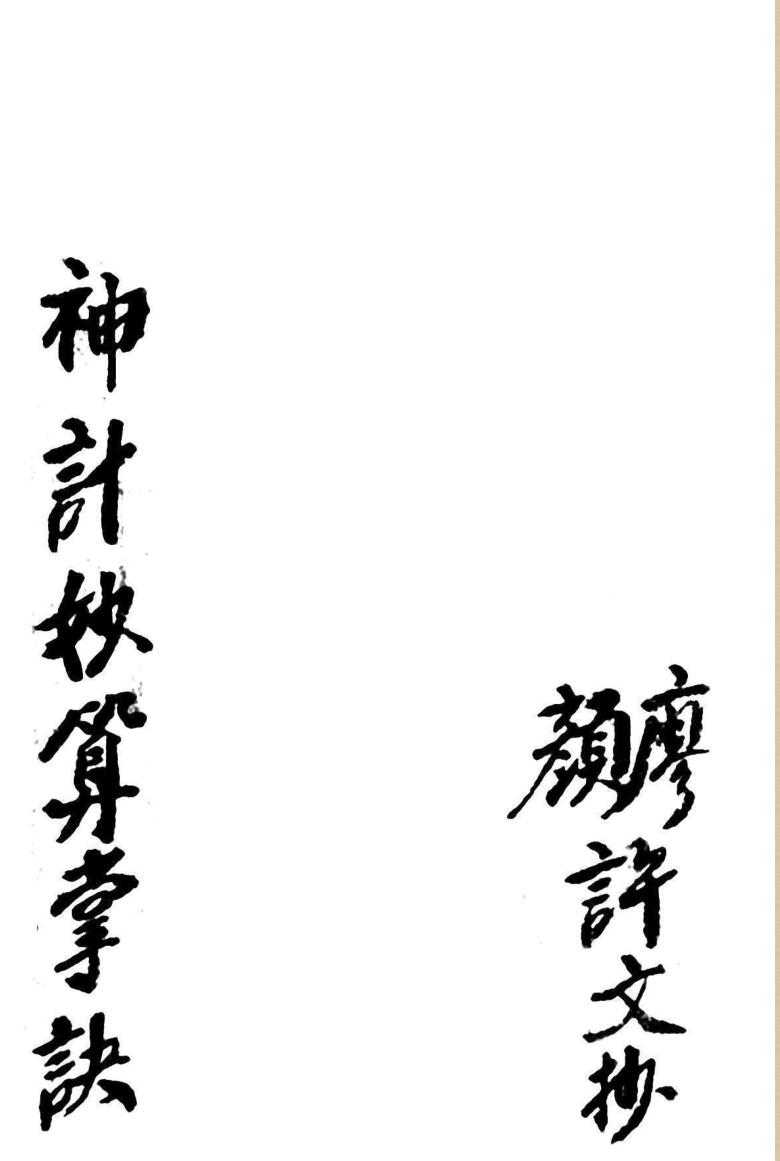 廖顏許文抄
神計妙算掌訣